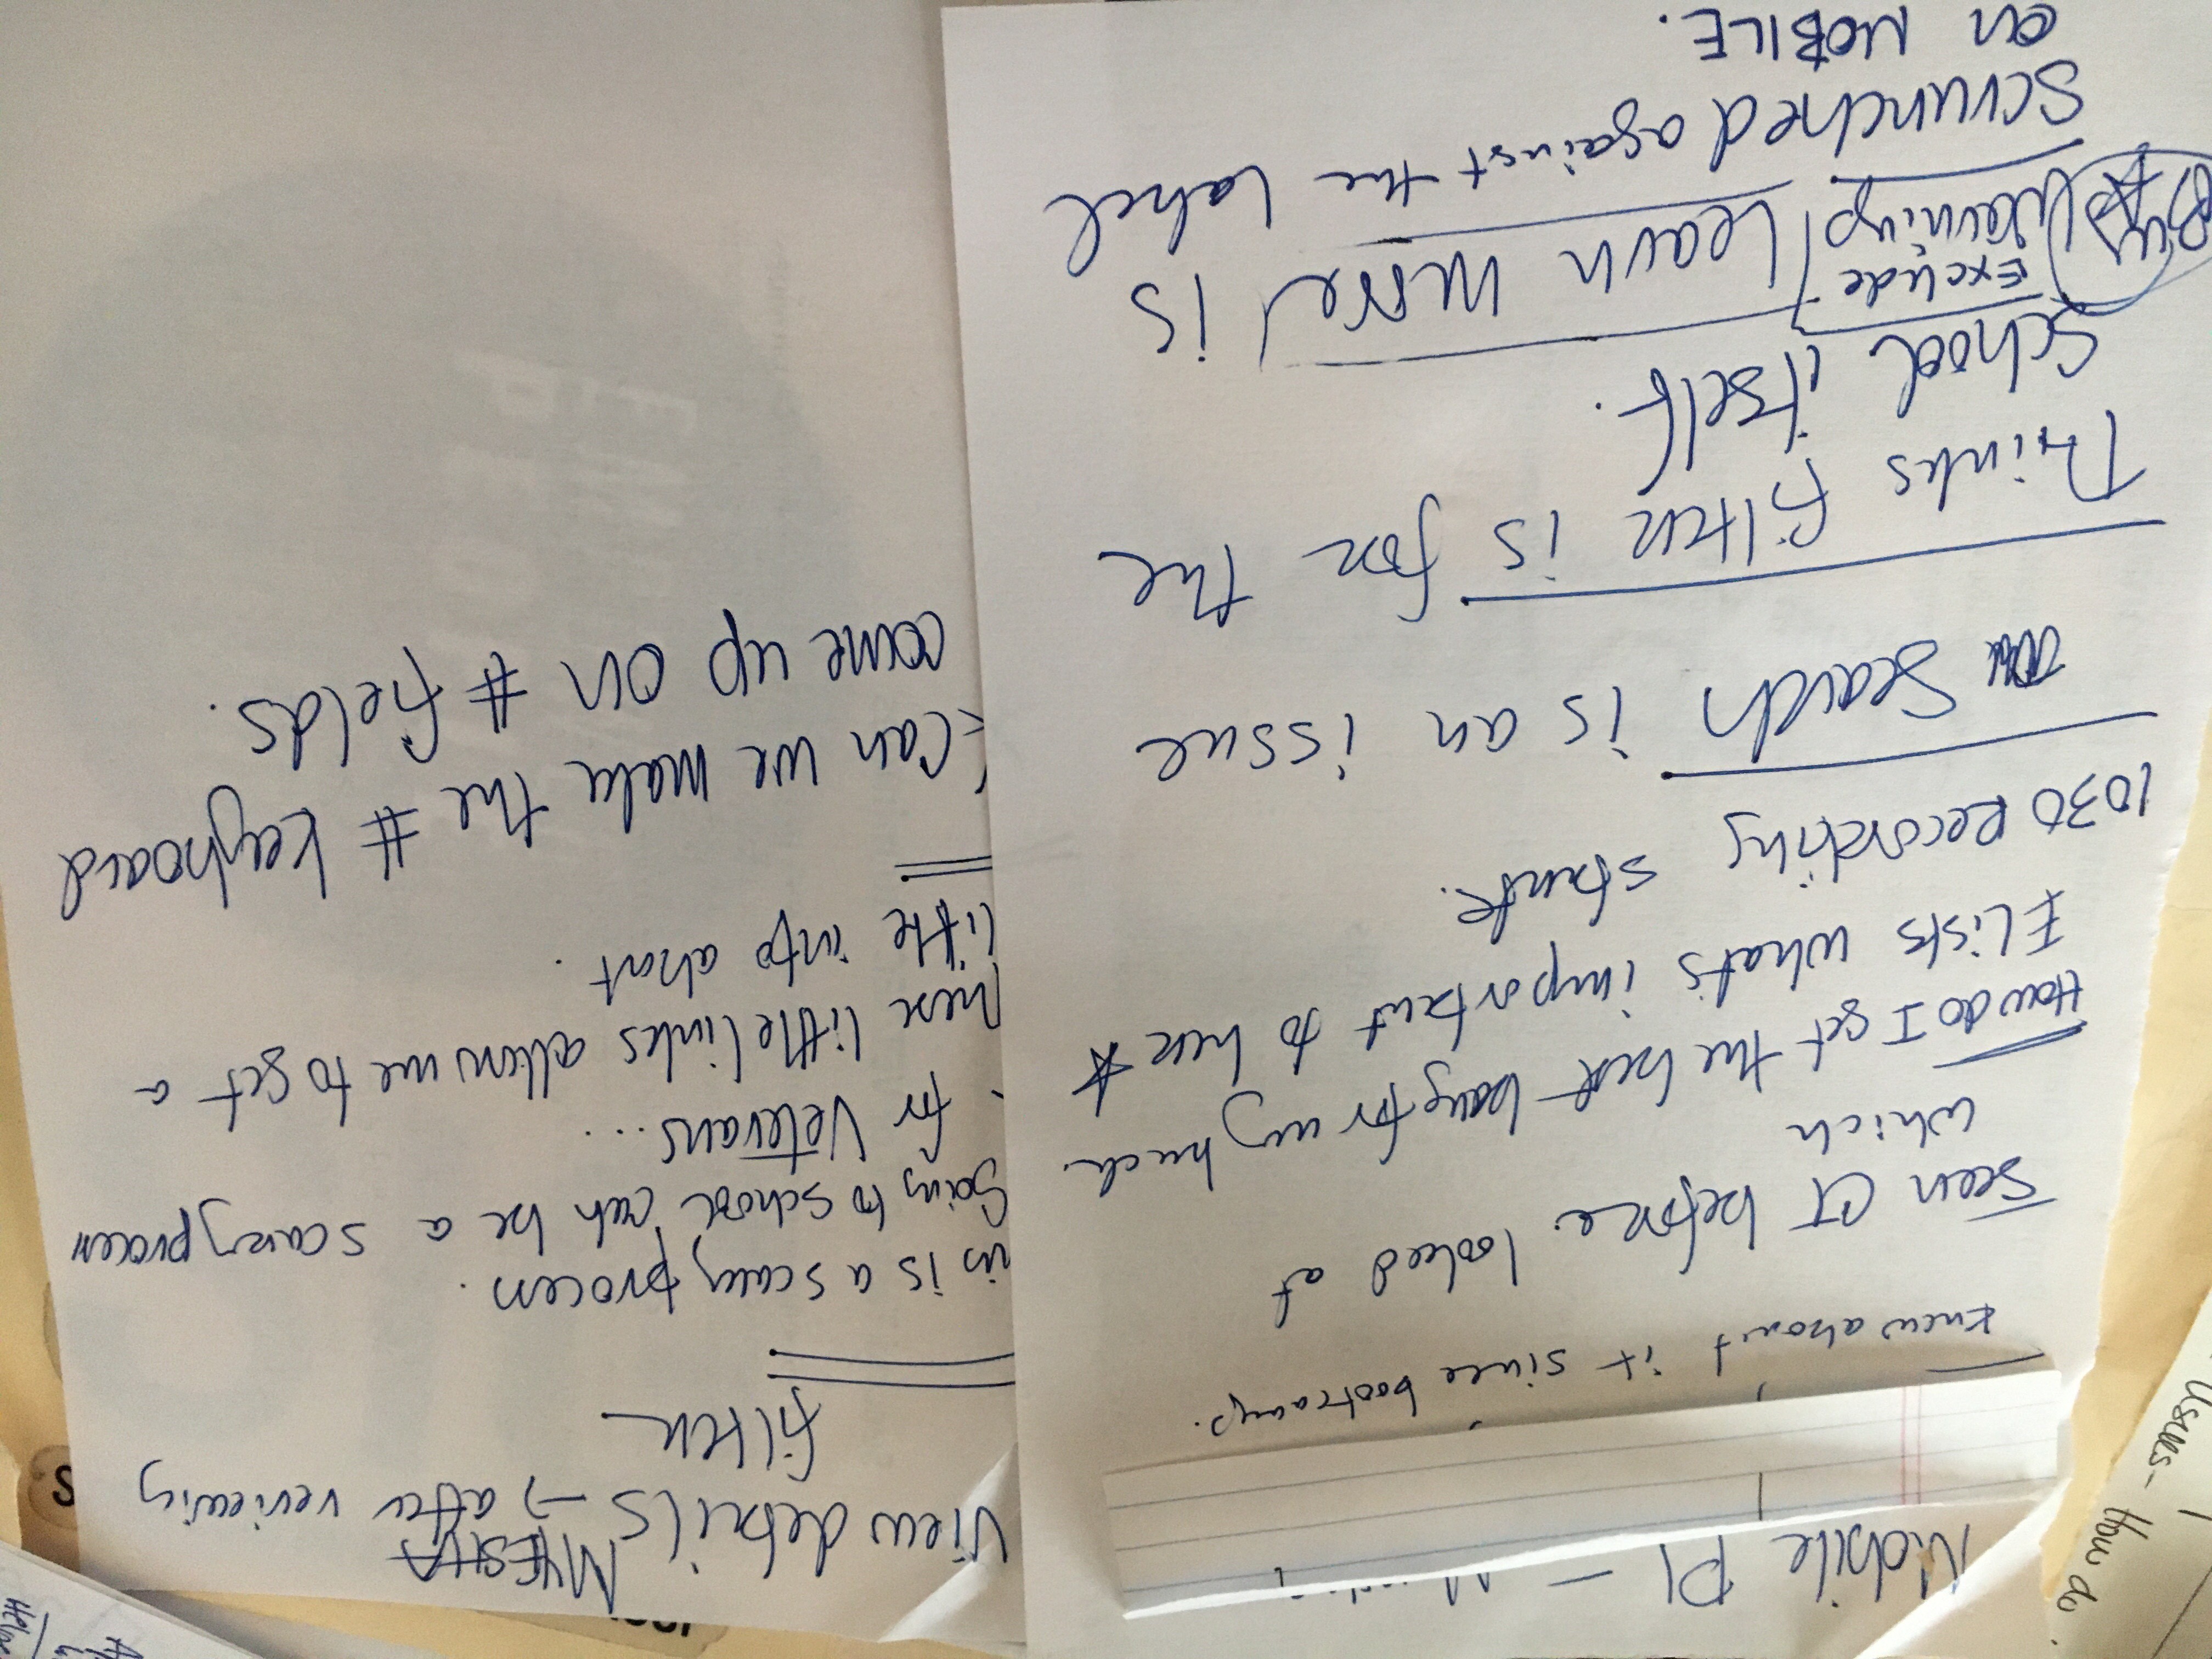 Mobile P1 —
Knew about it since bootcamp.
Seen CT before. looked at
which
How do I get the best bang for my buck.
Lists what's important to her ☆
1030 Recording starts.
Search is an issue
Thinks filter is for the
School itself.
Bug ☆
Exclude
Warnings
Learn more is
scrunched against the label
on MOBILE.
MYESHA
View details → after reviewing
filter
is a scary process.
Going to school can be a scary process
for Veterans...
little links allow me to get a
little info about.
Can we make the # keyboard
come up on # fields.
Users - How do